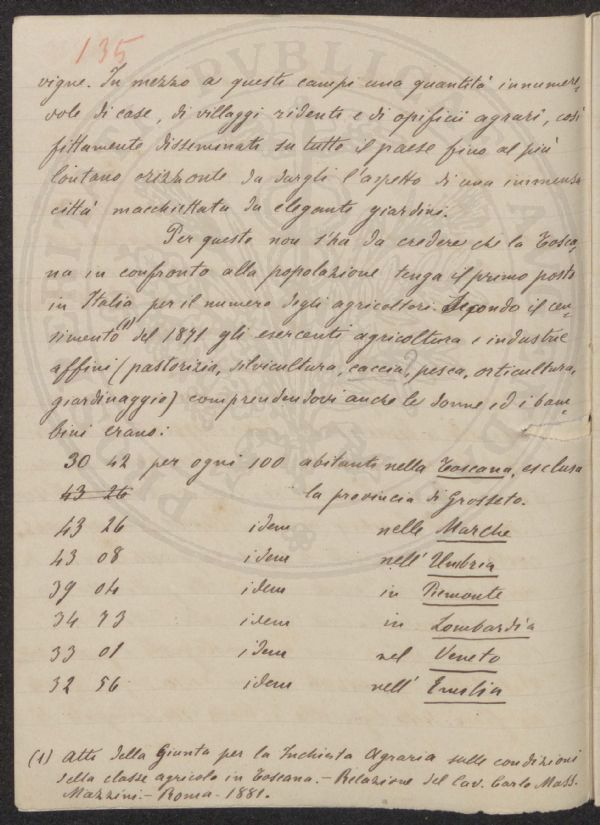 135
vigne. In mezzo a questi campi una quantità innumere-
vole di case, di villaggi ridenti e di opificii agrari, così
fittamente disseminati su tutto il paese fino al più
lontano orizzonte da dargli l'aspetto di una immensa
città macchiettata da eleganti giardini.
Per questo non s'ha da credere che la Tosca-
na in confronto alla popolazione tenga il primo posto
in Italia per il numero degli agricoltori. Secondo il cen-
simento (1) del 1871 gli esercenti agricoltura e industrie
affini (pastorizia, silvicultura, caccia, pesca, orticultura,
giardinaggio) comprendendovi anche le donne ed i bam-
bini erano:
30 42 per ogni 100 abitanti nella Toscana, esclusa
43 26 la provincia di Grosseto.
43 26 idem nelle Marche
43 08 idem nell'Umbria
39 04 idem in Piemonte
34 73 idem in Lombardia
33 01 idem nel Veneto
32 56 idem nell'Emilia
(1) Atti della Giunta per la Inchiesta Agraria sulle condizioni
della classe agricola in Toscana. - Relazione del Cav. Carlo Mass.
Mazzini. - Roma - 1881.